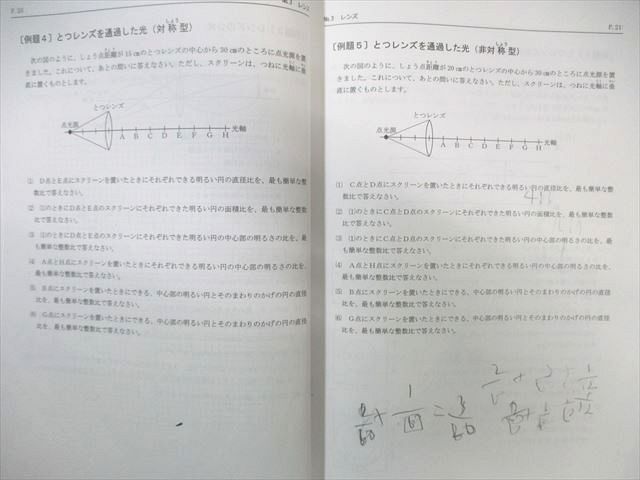 P.20
No.3 レンズ
しょう
〔例題４〕とつレンズを通過した光（対称型）
次の図のように、しょう点距離が15㎝のとつレンズの中心から30㎝のところに点光源を置
きました。これについて、あとの問いに答えなさい。ただし、スクリーンは、つねに光軸に垂
直に置くものとします。
とつレンズ
点光源
A B C D E F G H 光軸
⑴ D点とE点にスクリーンを置いたときにそれぞれできる明るい円の直径比を、最も簡単な整
数比で答えなさい。
⑵ ⑴のときにD点とE点のスクリーンにそれぞれできた明るい円の面積比を、最も簡単な整数
比で答えなさい。
⑶ ⑴のときにD点とE点のスクリーンにそれぞれできた明るい円の中心部の明るさの比を、最
も簡単な整数比で答えなさい。
⑷ A点とH点にスクリーンを置いたときにそれぞれできる明るい円の中心部の明るさの比を、
最も簡単な整数比で答えなさい。
⑸ B点にスクリーンを置いたときにできる、中心部の明るい円とそのまわりのかげの円の直径
比を、最も簡単な整数比で答えなさい。
⑹ G点にスクリーンを置いたときにできる、中心部の明るい円とそのまわりのかげの円の直径
比を、最も簡単な整数比で答えなさい。
No.3 レンズ
P.21
しょう
〔例題５〕とつレンズを通過した光（非対称型）
次の図のように、しょう点距離が20㎝のとつレンズの中心から30㎝のところに点光源を置
きました。これについて、あとの問いに答えなさい。ただし、スクリーンは、つねに光軸に垂
直に置くものとします。
とつレンズ
点光源
A B C D E F G H 光軸
⑴ C点とD点にスクリーンを置いたときにそれぞれできる明るい円の直径比を、最も簡単な整
数比で答えなさい。
⑵ ⑴のときにC点とD点のスクリーンにそれぞれできた明るい円の面積比を、最も簡単な整数
比で答えなさい。
⑶ ⑴のときにC点とD点のスクリーンにそれぞれできた明るい円の中心部の明るさの比を、最
も簡単な整数比で答えなさい。
⑷ A点とH点にスクリーンを置いたときにそれぞれできる明るい円の中心部の明るさの比を、
最も簡単な整数比で答えなさい。
⑸ B点にスクリーンを置いたときにできる、中心部の明るい円とそのまわりのかげの円の直径
比を、最も簡単な整数比で答えなさい。
⑹ G点にスクリーンを置いたときにできる、中心部の明るい円とそのまわりのかげの円の直径
比を、最も簡単な整数比で答えなさい。